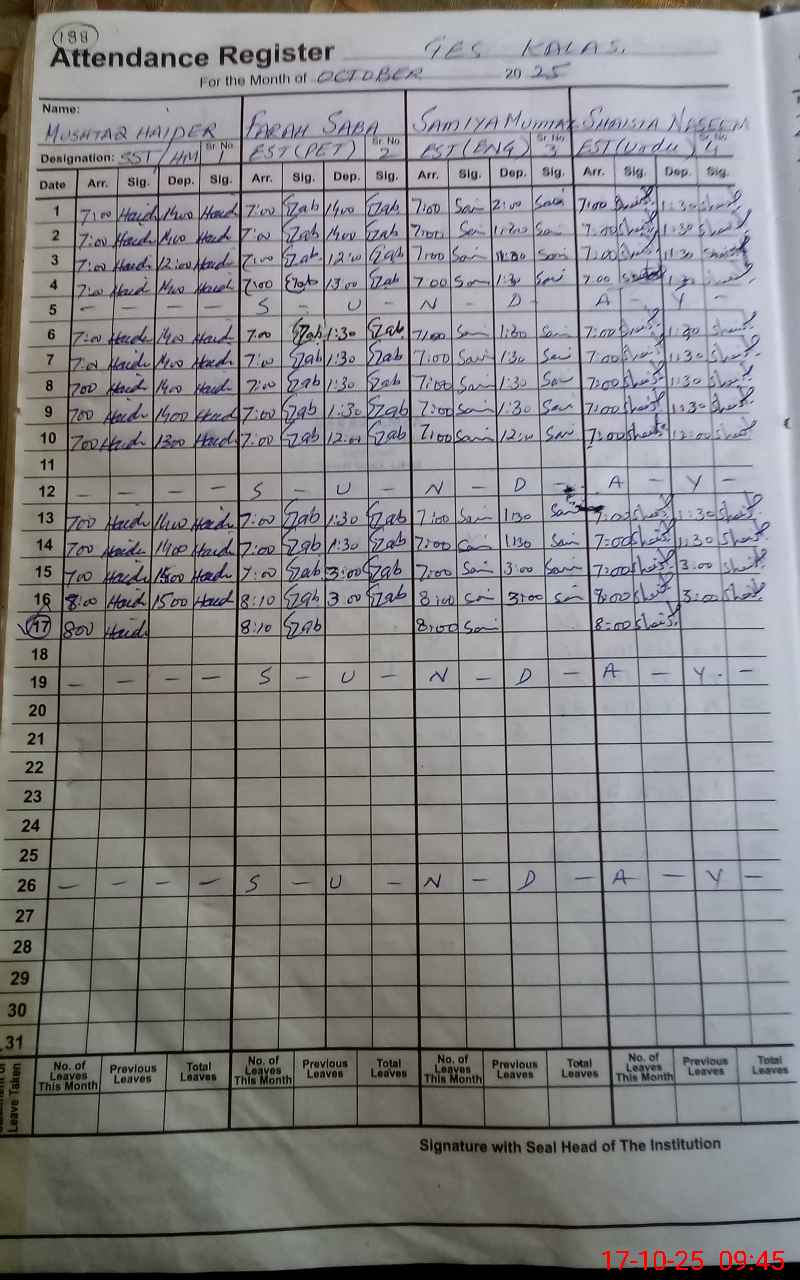 188
Attendance Register GES KALAS.
For the Month of OCTOBER 2025
Name:
MUSHTAQ HAIDER FARAH SABA SAMIYA MUMTAZ SHAISTA NASEEM
Designation: SST/HM Sr. No. 1 EST(PET) Sr. No. 2 EST(ENG) Sr. No. 3 EST(Urdu) 4
Date Arr. Sig. Dep. Sig. Arr. Sig. Dep. Sig. Arr. Sig. Dep. Sig. Arr. Sig. Dep. Sig.
1 7:00 Haid 1400 Haid 7:00 Zab 1400 Zab 7:00 Sam 2:00 Sam 7:00 1:30
2 7:00 Haid 1400 Haid 7:00 Zab 1400 Zab 7:00 Sam Sam 7:00 1:30
3 7:00 Haid 12:00 Haid 7:00 Zab 12:00 Zab 7:00 Sam Sam 7:00
4 7:00 Haid Haid 7:00 Zab 1300 Zab 7:00 Sam 1:30 Sam 7:00
5 - - - - S - U - N - D - A - Y -
6 7:00 Haid 1400 Haid 7:00 Zab 1:30 Zab 7:00 Sam 1:30 Sam 7:00 1:30
7 7:00 Haid 1400 Haid 7:00 Zab 1:30 Zab 7:00 Sam 1:30 Sam 7:00 1:30
8 700 Haid 1400 Haid 7:00 Zab 1:30 Zab 7:00 Sam 1:30 Sam 7:00 1:30
9 700 Haid 1400 Haid 7:00 Zab 1:30 Zab 7:00 Sam 1:30 Sam 7:00 1:30
10 700 Haid 1300 Haid 7:00 Zab 12:00 Zab 7:00 Sam 12:00 Sam 7:00 12:00
11
12 - - - - S - U - N - D - A - Y -
13 700 Haid 1400 Haid 7:00 Zab 1:30 Zab 7:00 Sam 1:30 Sam 7:00 1:30
14 700 Haid 1400 Haid 7:00 Zab 1:30 Zab 7:00 Sam 1:30 Sam 7:00 1:30
15 700 Haid 1500 Haid 7:00 Zab 3:00 Zab 7:00 Sam 3:00 Sam 7:00 3:00
16 8:00 Haid 1500 Haid 8:10 Zab 3:00 Zab 8:00 Sam 3:00 Sam 8:00 3:00
17 800 Haid 8:10 Zab 8:00 Sam 8:00
18
19 - - - - S - U - N - D - A - Y -
20
21
22
23
24
25
26 - - - - S - U - N - D - A - Y -
27
28
29
30
31
Leave Taken No. of Leaves This Month Previous Leaves Total Leaves No. of Leaves This Month Previous Leaves Total Leaves No. of Leaves This Month Previous Leaves Total Leaves No. of Leaves This Month Previous Leaves Total Leaves
Signature with Seal Head of The Institution
17-10-25 09:45